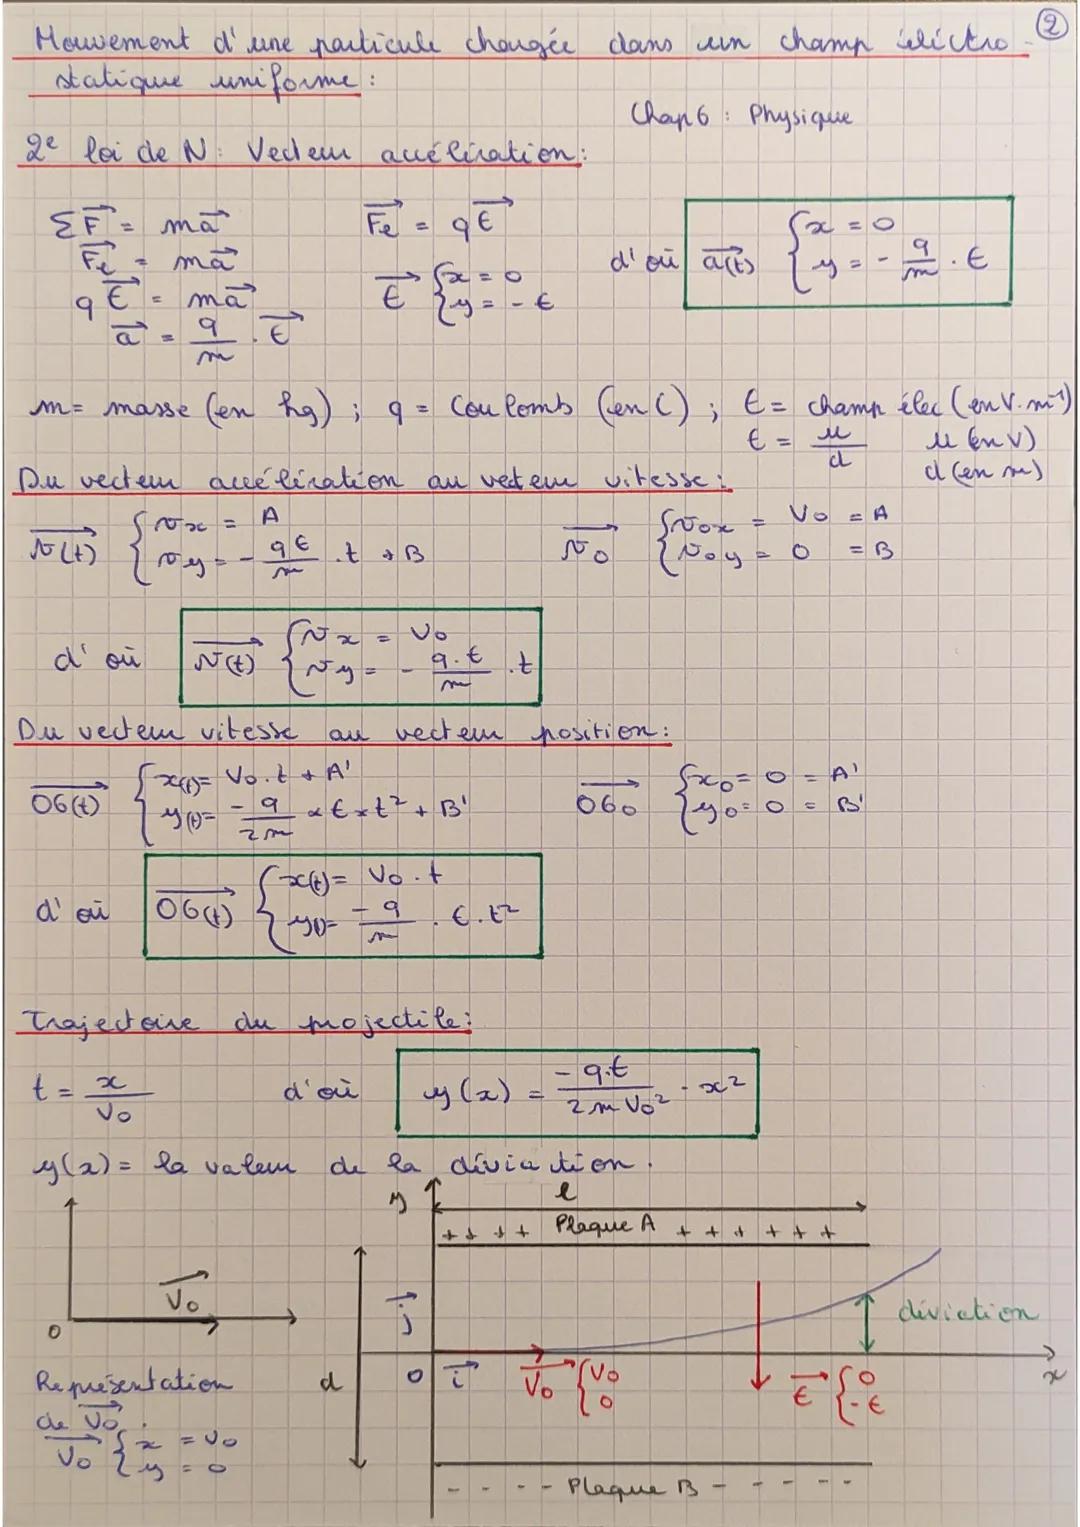 ②
Mouvement d'une particule chargée dans un champ électro-
statique uniforme :
Chap 6 : Physique
2e loi de N : Vecteur accélération :
ΣF⃗ = ma⃗
Fe⃗ = ma⃗
qE⃗ = ma⃗
a⃗ = q/m . E⃗
Fe⃗ = qE⃗
E⃗ { x = 0
y = - E
d'où a(t)⃗ { x = 0
y = - q/m . E
m = masse (en kg) ; q = Coulomb (en C) ; E = champ élec (en V.m⁻¹)
E = U/d U (en V)
d (en m)
Du vecteur accélération au vecteur vitesse :
v(t)⃗ { vx = A
vy = - qE/m . t + B
v0⃗ { v0x = V0 = A
v0y = 0 = B
d'où v(t)⃗ { vx = V0
vy = - q.E/m . t
Du vecteur vitesse au vecteur position :
OG(t)⃗ { x(t) = V0 . t + A'
y(t) = -q/2m × E × t² + B'
OG0⃗ { x0 = 0 = A'
y0 = 0 = B'
d'où OG(t)⃗ { x(t) = V0 . t
y(t) = -q/m . E . t²
Trajectoire du projectile :
t = x/V0 d'où y(x) = -q.E/2mV0² . x²
y(x) = la valeur de la déviation .
y l
++++ Plaque A ++++++
V0⃗
j⃗
déviation
O
d O i⃗ V0⃗ { V0
0
E⃗ { 0
-E
x
Représentation
de V0⃗ .
V0⃗ { x = V0
y = 0
- - - - Plaque B - - - - -